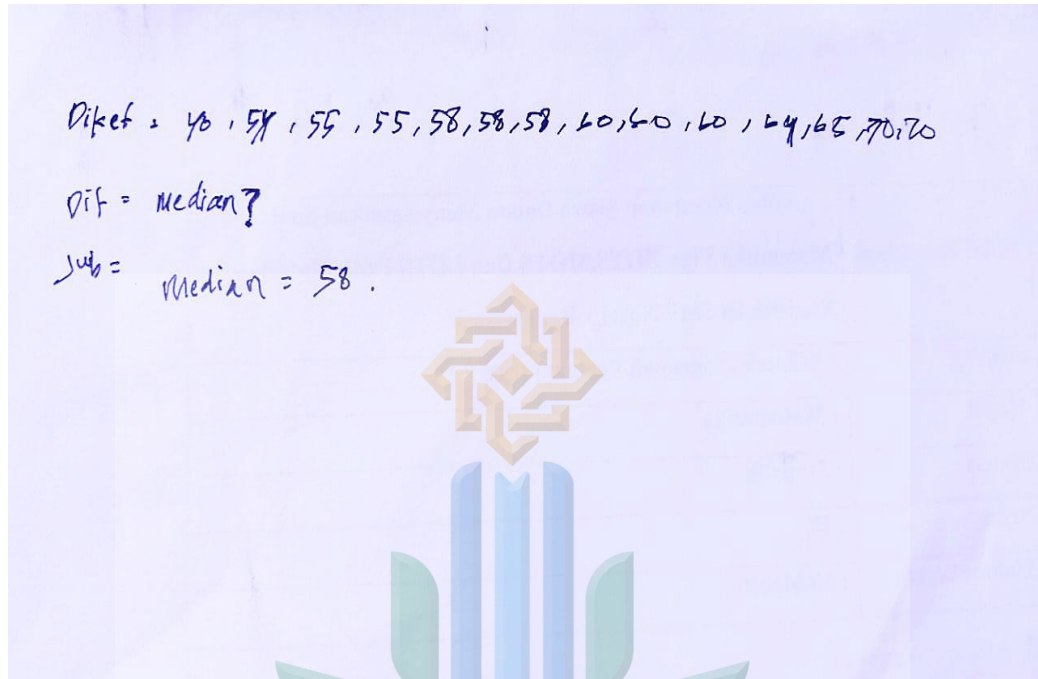 Diket = 40, 54, 55, 55, 58, 58, 58, 60, 60, 60, 64, 65, 70, 70
Dit = Median?
Jwb =
Median = 58.